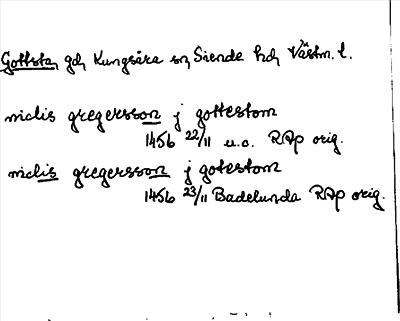 Gottsta, gd, Kungsåra sn, Siende hd, Västm. l.
niclis gregersson j gottestom
1456 22/11 u.o. RAp orig.
niclis gregersson j gotestom
1456 23/11 Badelunda RAp orig.